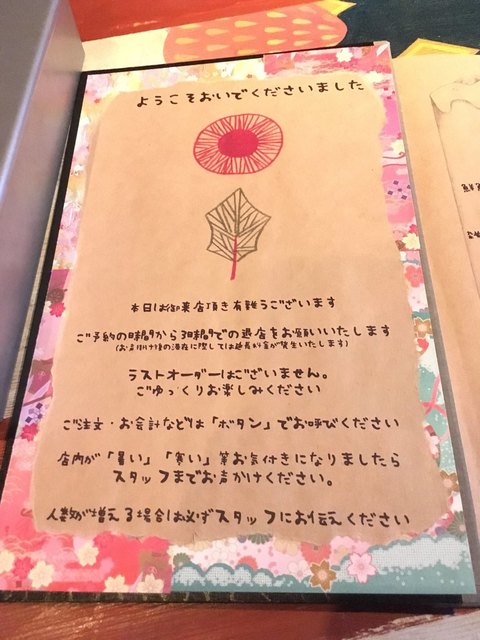 ようこそおいでくださいました
本日は御来店頂き有難うございます
ご予約の時間から3時間での退店をお願いいたします
ラストオーダーはございません。
ごゆっくりお楽しみください
ご注文・お会計などは「ボタン」でお呼びください
店内が「暑い」「寒い」等お気付きになりましたら
スタッフまでお声かけください。
人数が増える場合は必ずスタッフにお伝えください